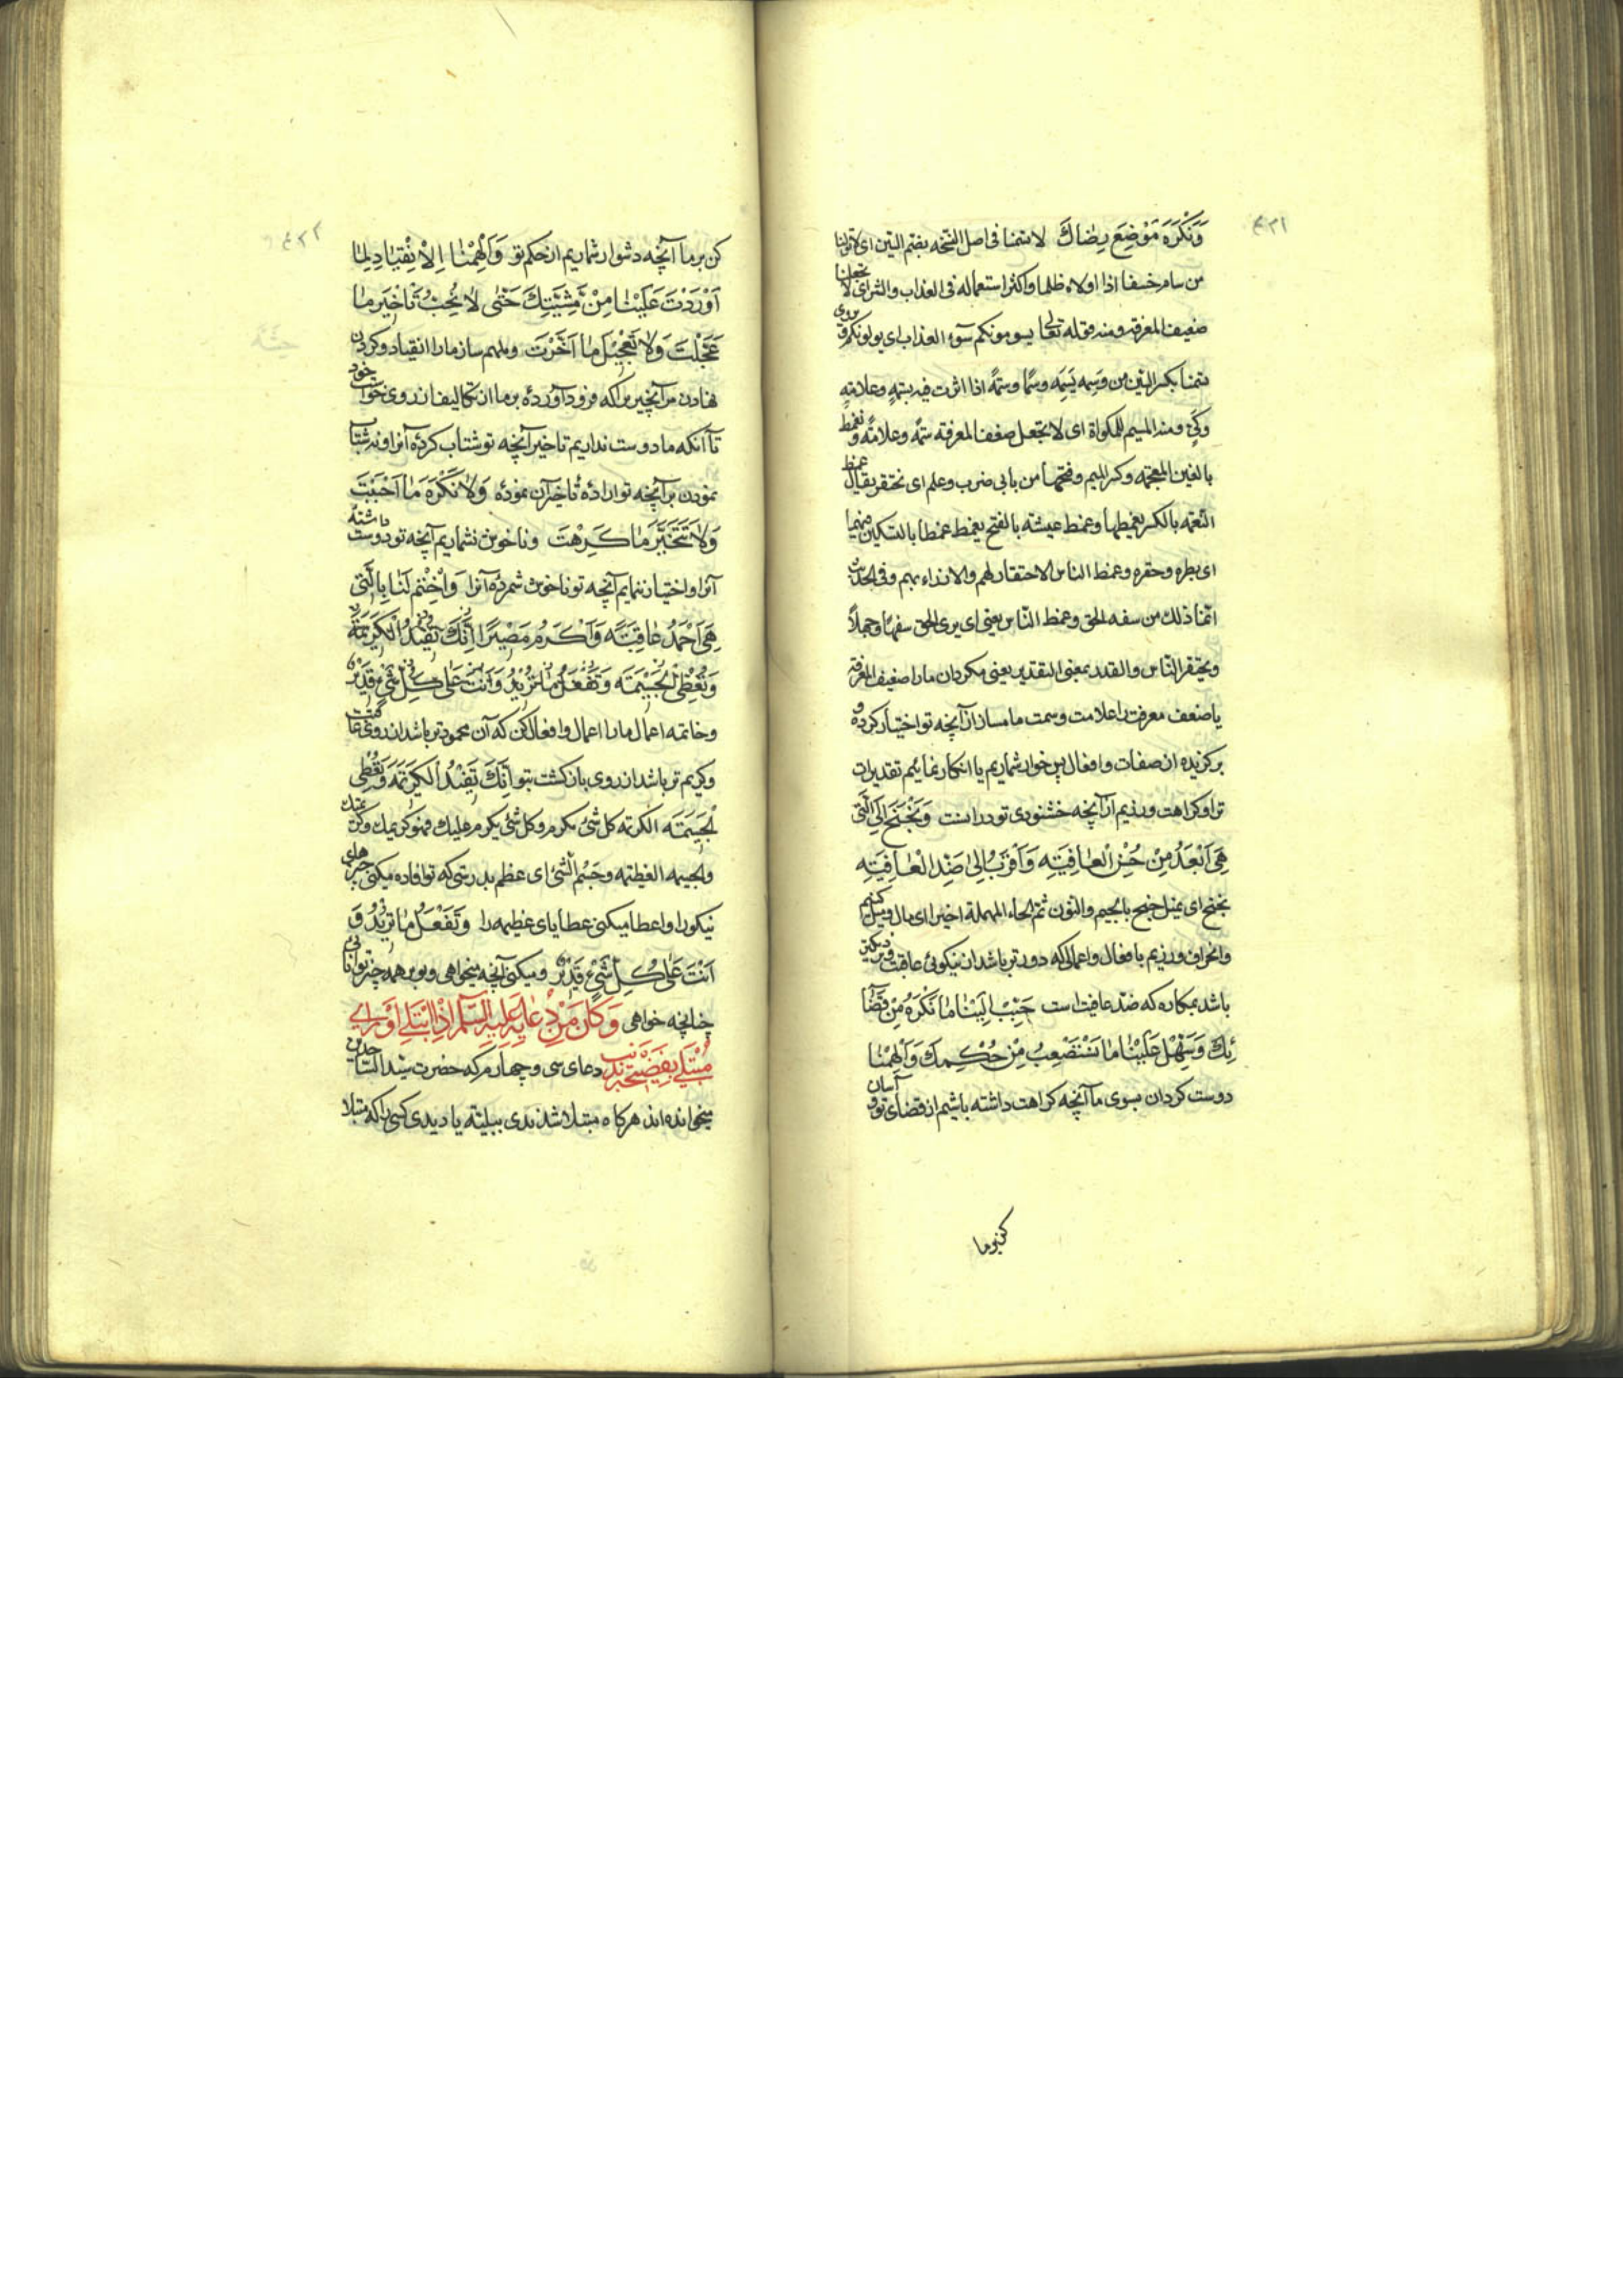 ٤٢١
وَنَكْرَهَ مَوْضِعَ رِضَاكَ لا تسمنا فی اصل النسخه بضم السین ای لا تولنا
من سامه خسفا اذا اولاه ظلما واکثر استعماله فی العذاب والشر ای لا تجعلنا
ضعیف المعرفة ومنه قوله تعالی یسومونکم سوء العذاب ای یولونکم و یروی
تسمنا بکسر السین من وسمه یسمه وسما وسمة اذا اثرت فیه بسمة وعلامة
وکی ومنه المیسم للمکواة ای لا تجعل ضعف المعرفة سمة وعلامة ونغمط
بالغین المعجمه وکسر المیم وفتحها من بابی ضرب وعلم ای نحتقر یقال غمط
النعمه بالکسر یغمطها وغمط عیشه بالفتح یغمط غمطا بالتسکین فیهما
ای بطره وحقره وغمط الناس الاحتقار لهم والازراء بهم وفی الحدیث
انما ذلک من سفه الحق وغمط الناس یعنی ای یری الحق سفها وجهلا
ویحتقر الناس والقدر بمعنی التقدیر یعنی مکردان ما را ضعیف المعرفة
یا ضعف معرفت را علامت وسمت ما مساز از آنچه تو اختیار کرده و
برکزیده از صفات وافعال پس خوار شماریم یا انکار نمائیم تقدیرات
ترا وکراهت ورزیم از آنچه خشنودی تو در است وَنَجْنَحَ اِلَی الَّتی
هِیَ اَبْعَدُ مِنْ حُسْنِ الْعٰافِیَتِهِ وَاَقْرَبُ اِلیٰ ضِدِّ الْعٰافِیَتِهِ
نجنح ای نمیل جنح بالجیم والنون ثم الحاء المهملة اخیرا ای مال ومیل کنیم
وانحراف ورزیم بافعال واعمالی که دورتر باشد از نیکوئی عاقبت ونزدیکتر
باشد بمکاره که ضد عافیت است حَبِّبْ اِلَیْنٰا مٰا نَکْرَهُ مِنْ قَضٰآ
ئِکَ وَسَهِّلْ عَلَیْنٰا مٰا نَسْتَصْعِبُ مِنْ حُکْمِکَ وَاَلْهِمْنٰا
دوست کردان بسوی ما آنچه کراهت داشته باشیم از قضای تو و آسان
کن بر ما
٤٢٢
کن بر ما آنچه دشوار شماریم از حکم تو وَاَلْهِمْنٰا اِلْاِنْقِیٰادَ لِمٰا
اَوْرَدْتَ عَلَیْنٰا مِنْ مَشِیَّتِکَ حَتّٰی لاٰ نُحِبَّ تَاْخیرَ مٰا
عَجَّلْتَ وَلاٰ تَعْجیلَ مٰا اَخَّرْتَ وملهم ساز ما را انقیاد وکردن
نهادن مر آنچیز را که فرود آوردهٔ بر ما از تکالیف از روی خواست خود
تا آنکه ما دوست نداریم تاخیر آنچه تو شتاب کردهٔ آنرا ونه شتاب
نمودن بر آنچه تو ارادهٔ تاخیر آن نمودهٔ وَلاٰ نَکْرَهَ مٰا اَحْبَبْتَ
وَلاٰ نَتَخَیَّرَ مٰا کَرِهْتَ وناخوش نشماریم آنچه تو دوست داشتهٔ
آنرا واختیار ننمایم آنچه تو ناخوش شمردهٔ آنرا وَاخْتِمْ لَنٰا بِالَّتی
هِیَ اَحْمَدُ عٰاقِبَتَهً وَاَکْرَمُ مَصیرًا اِنَّکَ تُفیدُ الْکَریمَةَ
وَتُعْطِی الْجَسیمَتَه وَتَفْعَلُ مٰا تُریدُ وَاَنْتَ عَلیٰ کُلِّ شَیْءٍ قَدیرٌ
وخاتمه اعمال ما را اعمال وافعال کن که آن محمودتر باشد از روی عاقبت
وکریم تر باشد از روی بازکشت بتو اِنَّکَ تُفیدُ الْکَریمَتَهَ وَتُعْطِی
الْجَسیمَتَه الکرته کل شئ مکرم وکل شئ یکرم علیک فهو کریمک وکرمتک
والجسیمه العظیمه وجسم الشئ ای عظم بدرستی که تو افاده میکنی چیزهای
نیکو را واعطا میکنی عطایای عظیمه را وَتَفْعَلُ مٰا تُریدُ وَ
اَنْتَ عَلیٰ کُلِّ شَیْءٍ قَدیرٌ ومیکنی آنچه میخواهی وتو بر همه چیز توانائی
چنانچه خواهی وَکٰانَ مِنْ دُعٰائِهِ عَلَیْهِ السَّلٰم اِذَا ابْتُلِیَ اَوْ رَاٰی
مُبْتَلیً بِفَضیحَتِهِ بِذَنْبٍ دعای سی وچهارم که حضرت سید الساجدین
میخوانده اند هرکاه مبتلا شدندی ببلیته یا دیدی کسی را که مبتلا